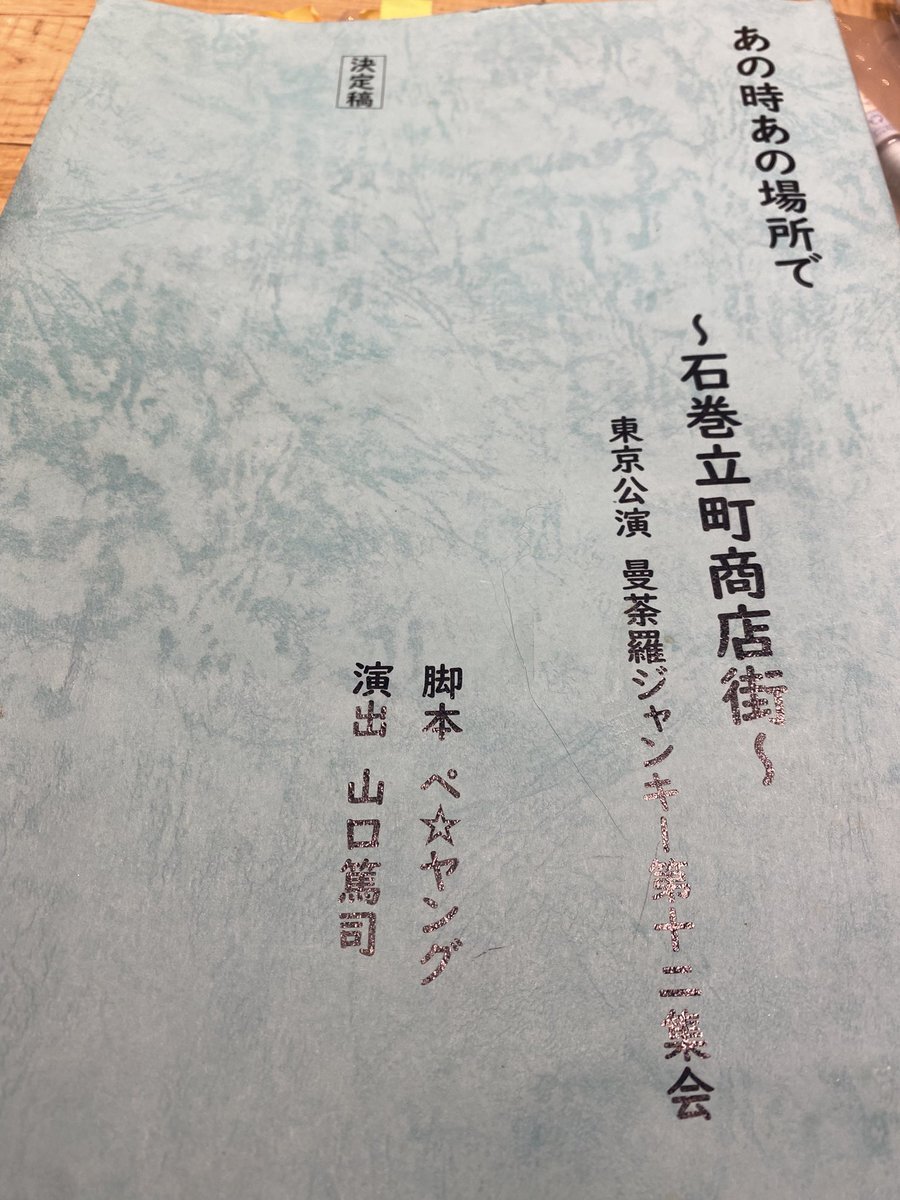 あの時あの場所で
～石巻立町商店街～
東京公演 曼荼羅ジャンキー第十二集会
決定稿
脚本 ペ☆ヤング
演出 山口篤司